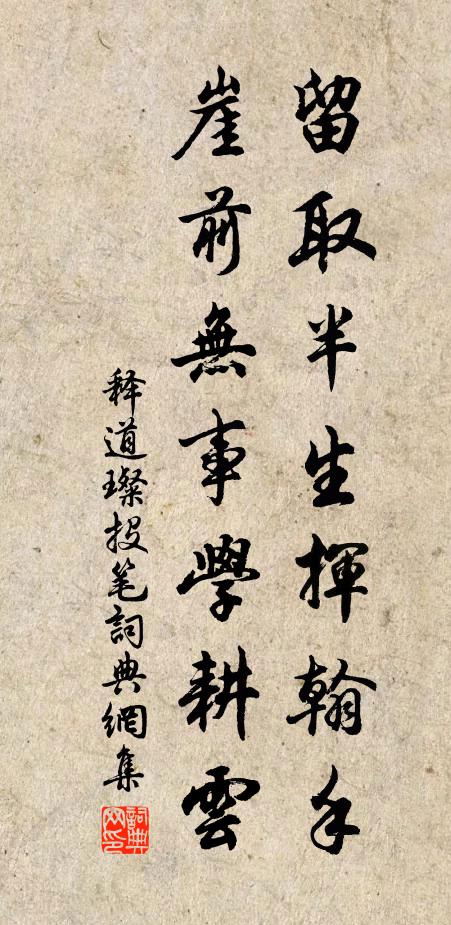 留取半生揮翰手
崖前無事學耕雲
释道璨投笔詞典網集
詞典网印